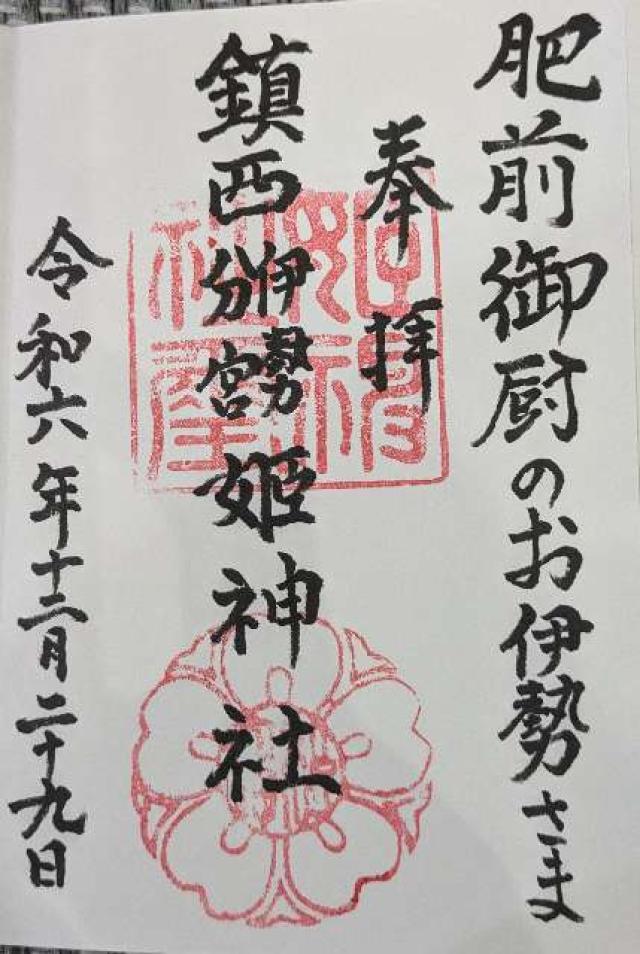 肥前御厨のお伊勢さま
奉拝
鎮西伊勢分宮姫神社
令和六年十二月二十九日